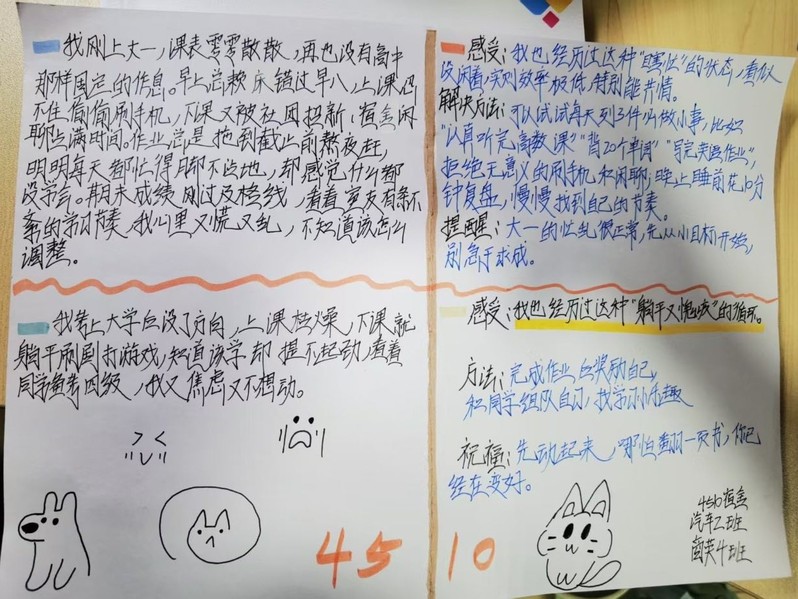 我刚上大一,课表零零散散,再也没有高中
那样固定的作息。早上总赖床错过早八,上课忍
不住偷偷刷手机,下课又被社团
聊占满时间。作业总是拖到截止前熬夜赶,
明明每天都忙得脚不沾地,却感觉什么都
没学会。期末成绩刚过及格线,看着室友有条不
紊的学习节奏,我心里又慌又乱,不知道该怎么
调整。
我考上大学后没了方向,上课枯燥,下课就
躺平刷剧打游戏,知道该学却提不起劲,看着
同学备考四级,我又焦虑又不想动。
45
感受:我也经历过这种“瞎忙”的状态,看似
没闲着,实则效率极低,特别能共情。
解决方法:可以试试每天列3件必做小事,比如
“认真听完高数课”“背20个单词”“写完英语作业”,
拒绝无意义的刷手机和闲聊;晚上睡前花10分
钟复盘,慢慢找到自己的节奏。
提醒:大一的忙乱很正常,先从小目标开始,
别急于求成。
感受:我也经历过这种“躺平又愧疚”的循环。
方法:完成作业后奖励自己
和同学组队自习,找学习小乐趣
祝福:先动起来,哪怕翻一页书,你已
经在变好。
10
4510宿舍
汽车2班
商英4班